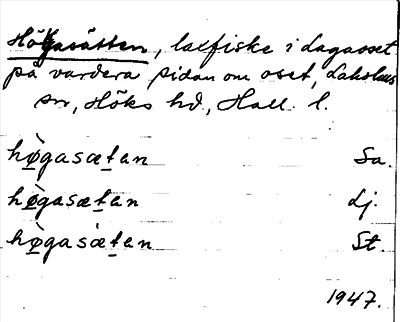 Högasätten, laxfiske i Lagaoset
på vardera sidan om oset, Laholms
sn, Höks hd, Hall. l.
hø̀gasætan Sa.
hø̀gasætan Lj.
hø̀gasætan St.
1947.